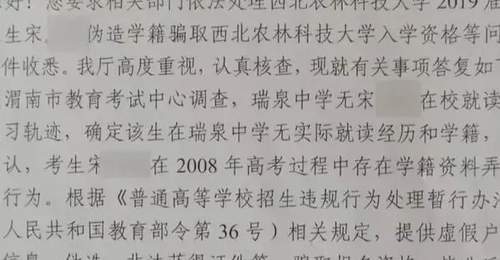 好！您要求相关部门依法处理西北农林科技大学 2019 准
生宋 伪造学籍骗取西北农林科技大学入学资格等问
件收悉。我厅高度重视，认真核查，现就有关事项答复如下
渭南市教育考试中心调查，瑞泉中学无宋 在校就读
习轨迹，确定该生在瑞泉中学无实际就读经历和学籍，
认，考生宋 在 2008 年高考过程中存在学籍资料弄
行为。根据《普通高等学校招生违规行为处理暂行办法
人民共和国教育部令第 36 号）相关规定，提供虚假户
信息、伪造、非法获得证件等，骗取报名资格